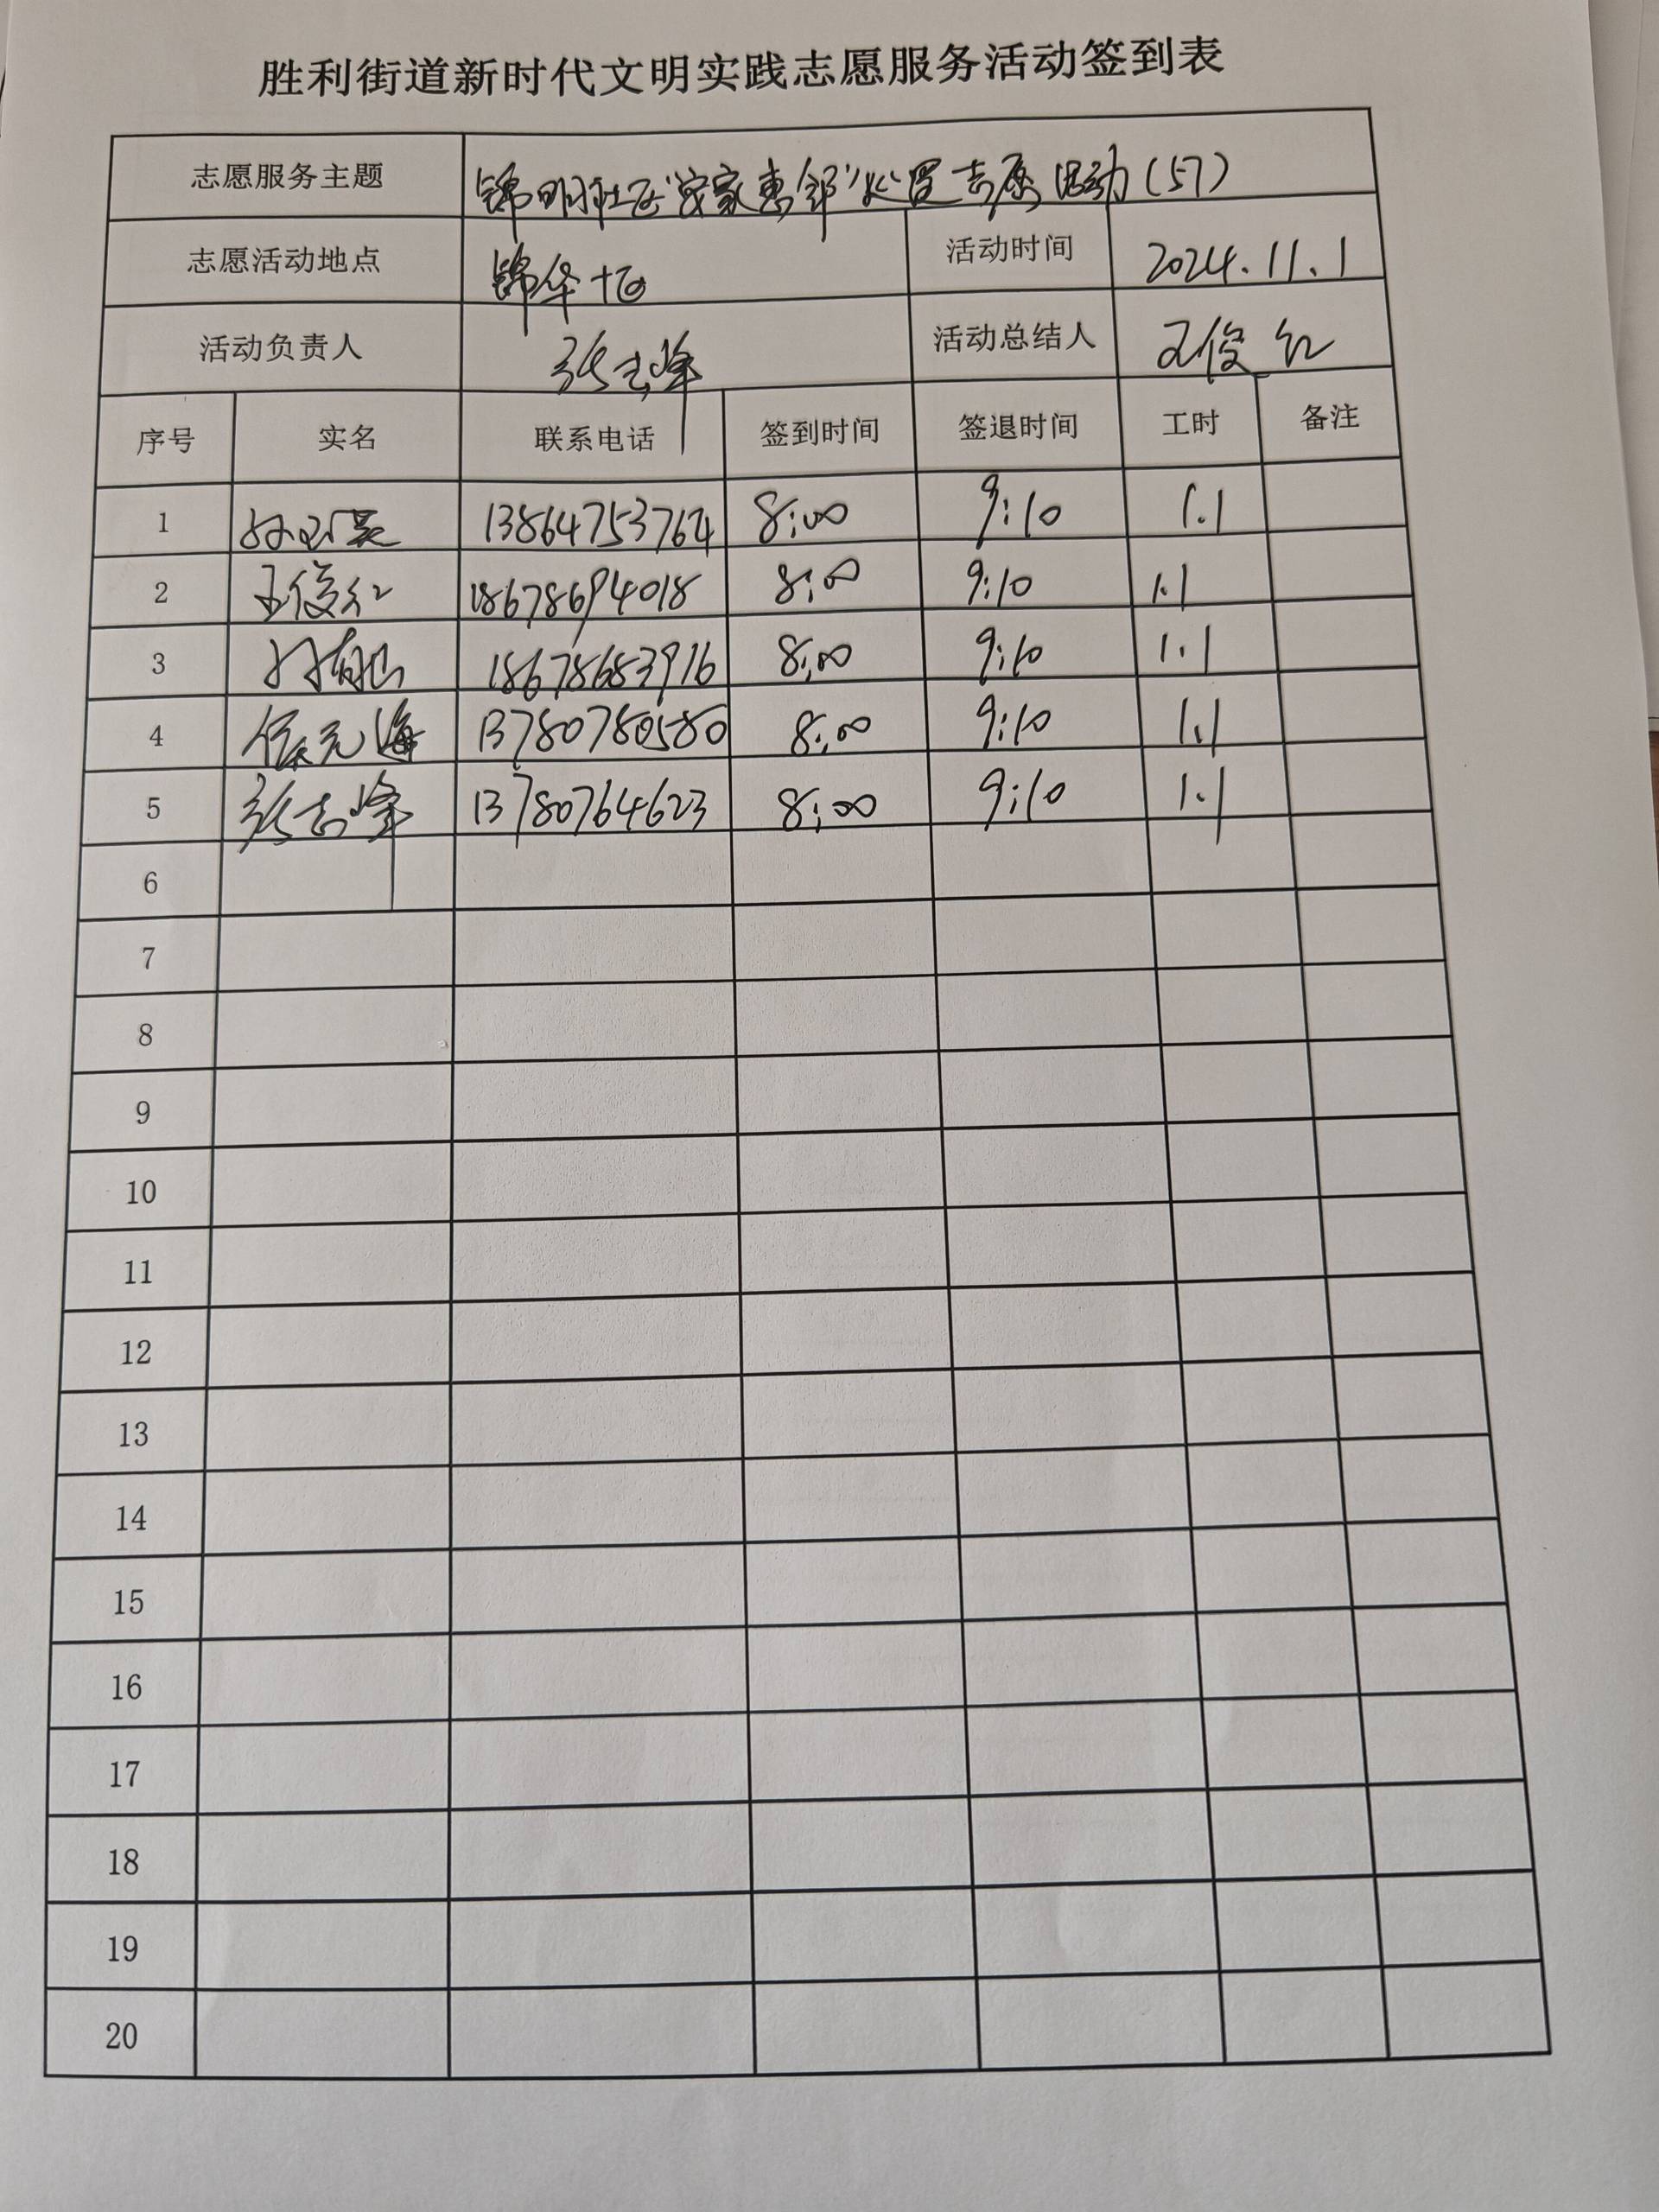 胜利街道新时代文明实践志愿服务活动签到表
志愿服务主题 锦明社区"安家惠邻"处置志愿活动(57)
志愿活动地点 锦华十区 活动时间 2024.11.1
活动负责人 张志峰 活动总结人 王俊红
序号 实名 联系电话 签到时间 签退时间 工时 备注
1 13864753764 8:00 9:10 1.1
2 王俊红 18678694018 8:00 9:10 1.1
3 18678683916 8:00 9:10 1.1
4 任元海 13780780580 8:00 9:10 1.1
5 张志峰 13780764623 8:00 9:10 1.1
6
7
8
9
10
11
12
13
14
15
16
17
18
19
20